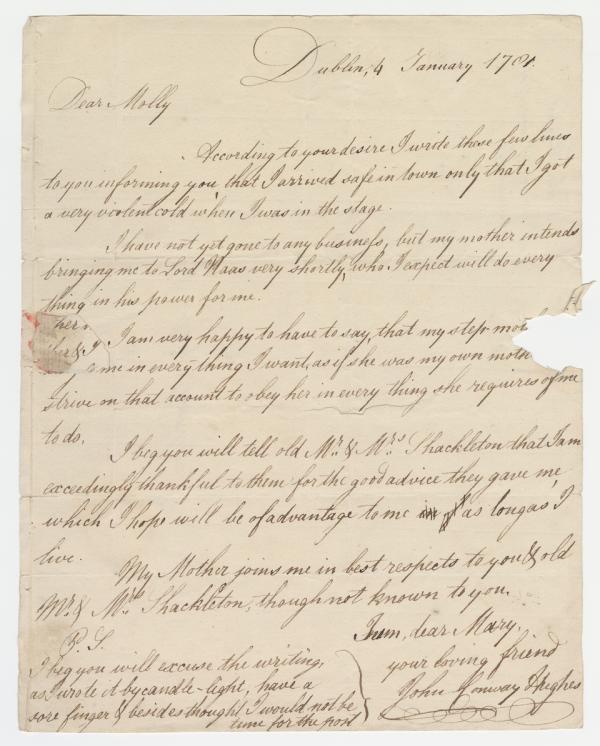 Dublin, 4 January 1781.
Dear Molly
According to your desire I write these few lines
to you informing you, that I arrived safe in town only that I got
a very violent cold when I was in the stage.
I have not yet gone to any business, but my mother intends
bringing me to Lord Naas very shortly, who I expect will do every
thing in his power for me.
I am very happy to have to say, that my step-mot
me in every thing I want, as if she was my own moth
strive on that account to obey her in every thing she requires of me
to do.
I beg you will tell old Mr. & Mrs. Shackleton that I am
exceedingly thankful to them for the good advice they gave me,
which I hope will be of advantage to me as long as I
live.
My Mother joins me in best respects to you & old
Mr. & Mrs. Shackleton, though not known to you.
I am, dear Mary,
your loving friend
John Conway Hughes
P. S.
I beg you will excuse the writing,
as I wrote it by candle-light, have a
sore finger & besides thought I would not be
time for the post